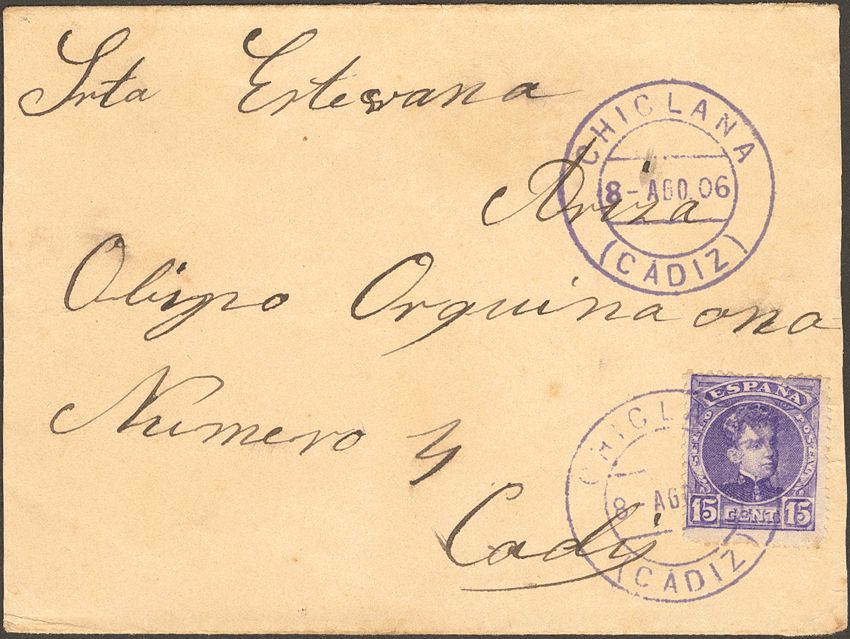 Srta Estevana
Ariza
Obispo Orquinaona
Numero 4
Cadiz
CHICLANA
8 - AGO. 06
(CÁDIZ)
CHICL
8 - AG
(CÁDIZ)
ESPAÑA
SELLO POSTAL
15 CENT. 15